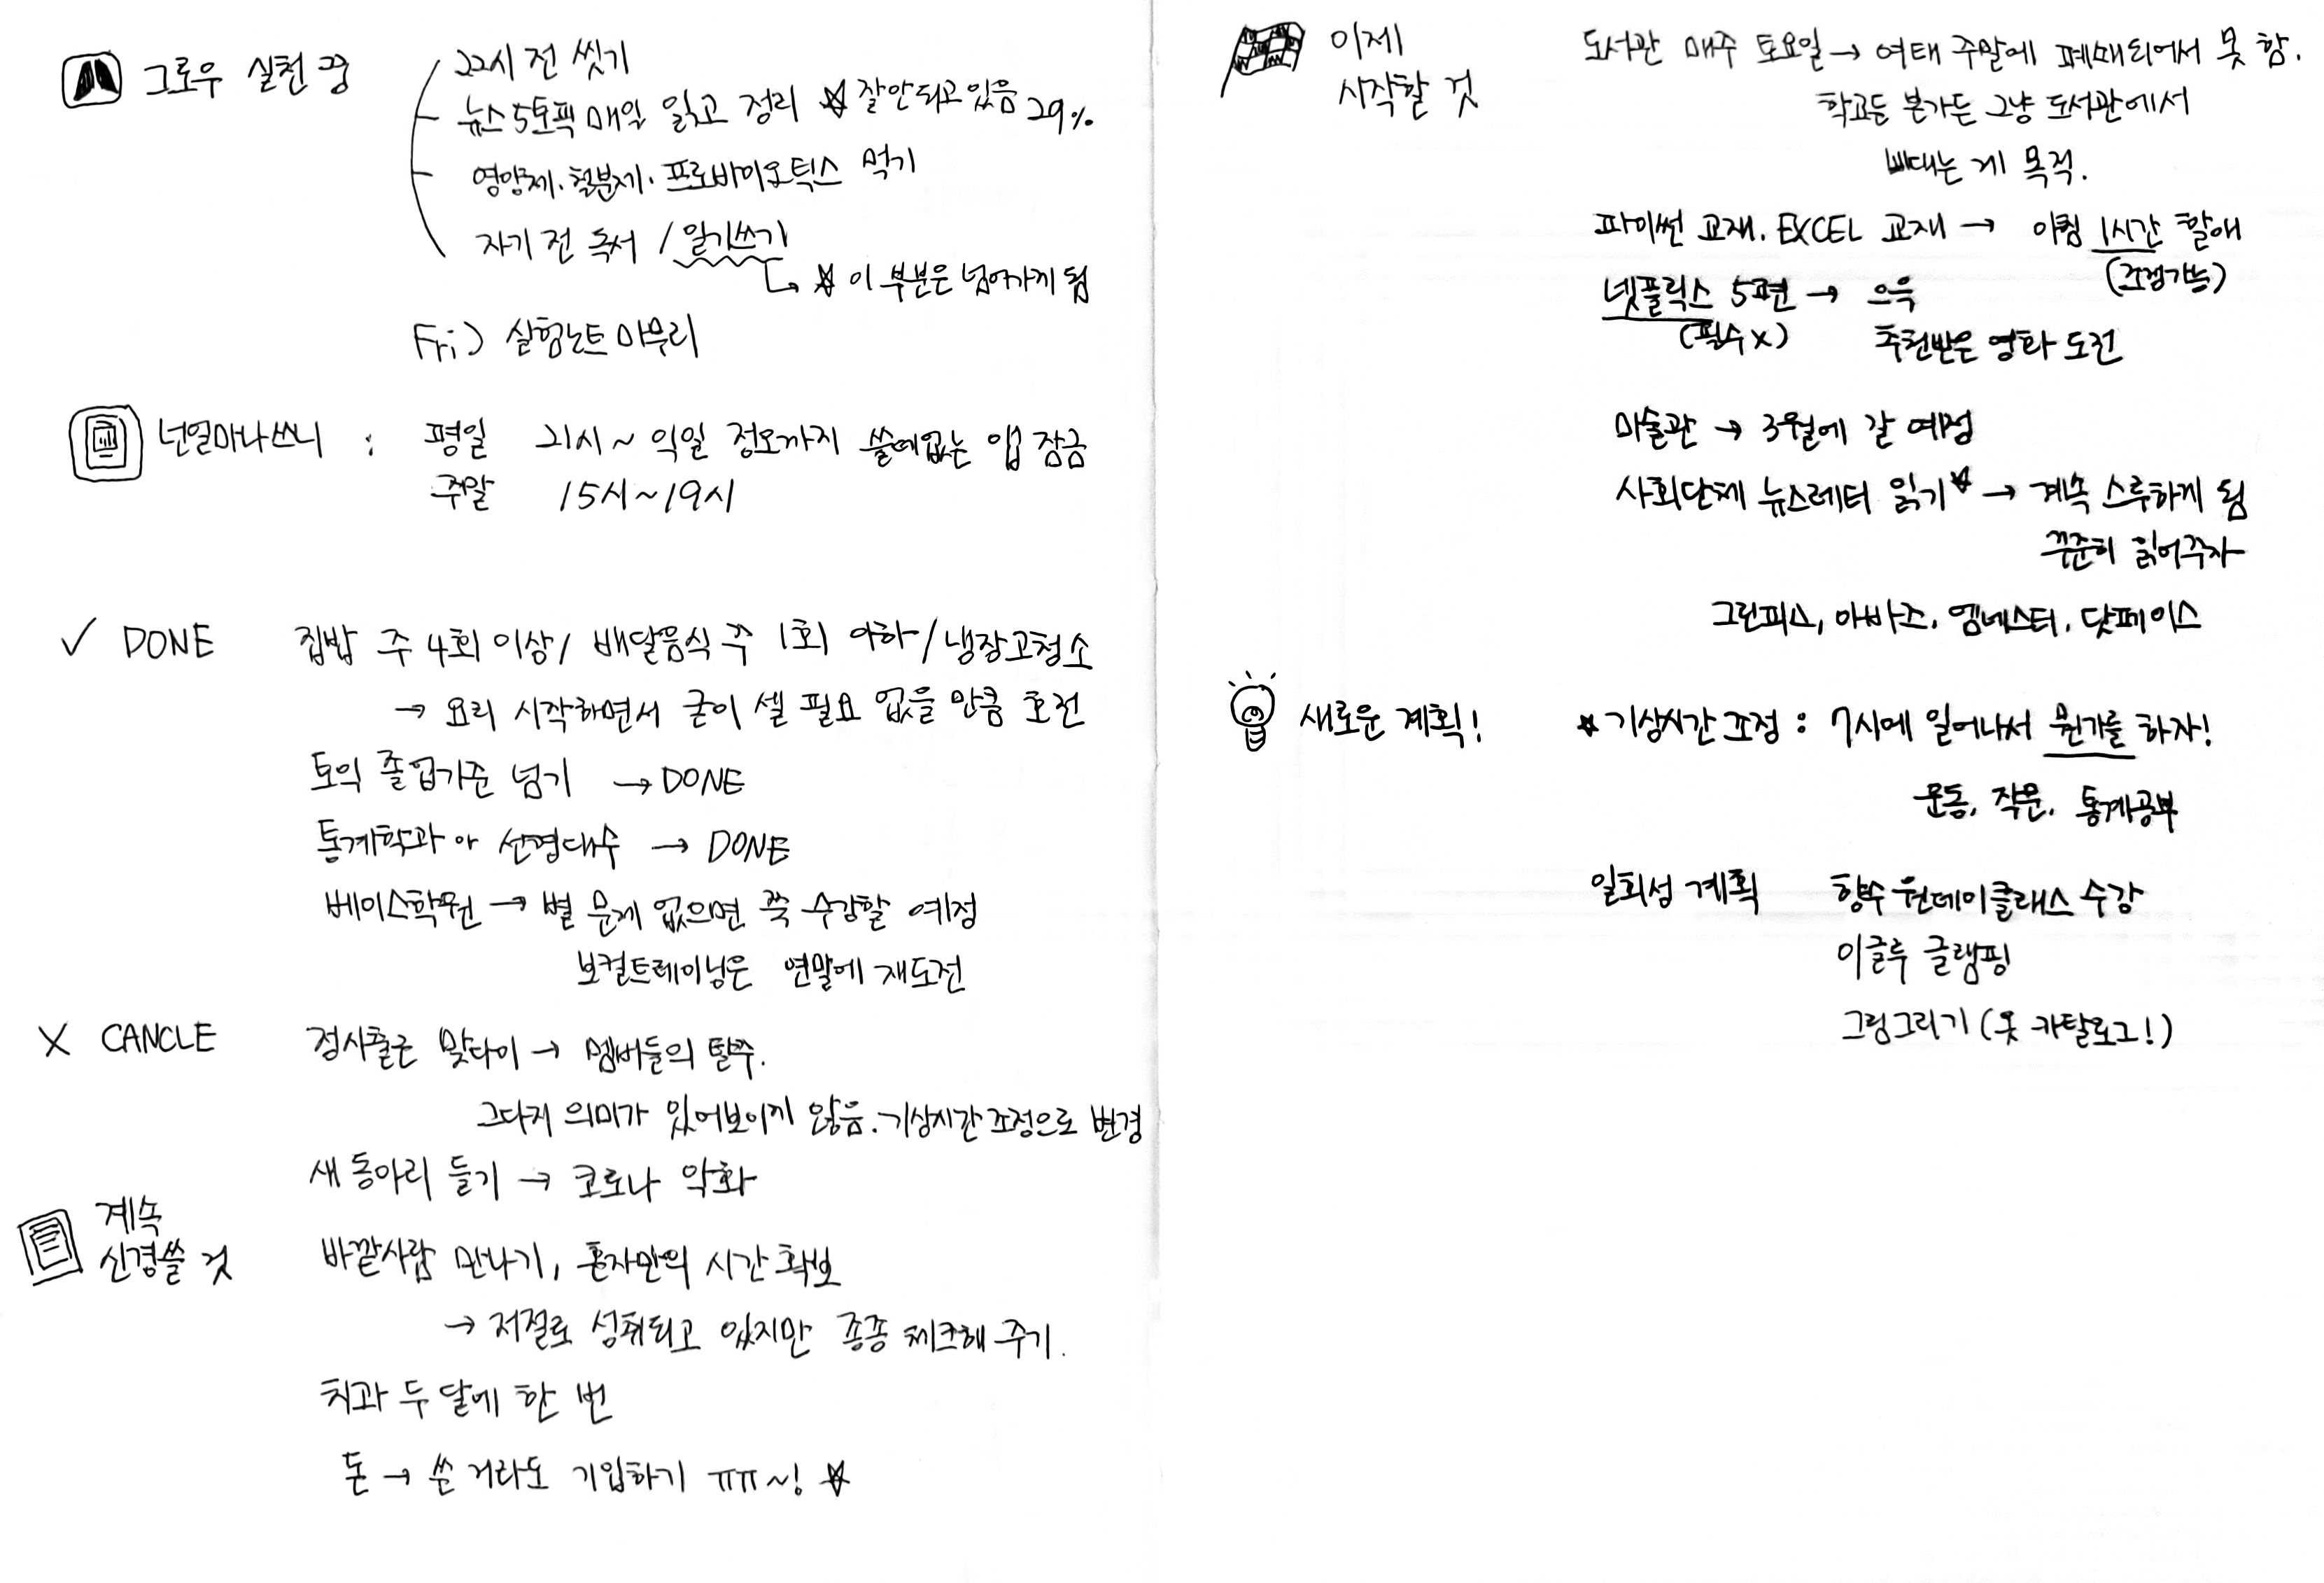 그로우 실천 중
22시 전 씻기
뉴스 5토픽 매일 읽고 정리 ☆ 잘 안되고 있음 29%
영양제·철분제·프로바이오틱스 먹기
자기 전 독서 / 일기쓰기
↳ ☆ 이 부분은 넘어가게 됨
Fri) 실험노트 마무리
넌얼마나쓰니 : 평일 21시~ 익일 정오까지 쓸데없는 앱 잠금
주말 15시~19시
✓ DONE 집밥 주 4회 이상 / 배달음식 주 1회 이하 / 냉장고청소
→ 요리 시작하면서 굳이 셀 필요 없을 만큼 호전
토익 졸업기준 넘기 → DONE
통계학과 아 선형대수 → DONE
베이스학원 → 별 문제 없으면 쭉 수강할 예정
보컬트레이닝은 연말에 재도전
X CANCLE 정시출근 맞다이 → 멤버들의 탈주.
그다지 의미가 있어보이지 않음. 기상시간 조정으로 변경
새 동아리 들기 → 코로나 악화
계속
신경쓸 것
바깥사람 만나기, 혼자만의 시간 확보
→ 저절로 성취되고 있지만 종종 체크해 주기.
치과 두 달에 한 번
돈 → 쓴 거라도 기입하기 ㅠㅠ~! ☆
이제
시작할 것
도서관 매주 토요일 → 여태 주말에 폐쇄되어서 못 함.
학교든 본가든 그냥 도서관에서
삐대는 게 목적.
파이썬 교재, EXCEL 교재 → 아침 1시간 할애
(조정가능)
넷플릭스 5편 → 으윽
(필수x) 추천받은 영화 도전
미술관 → 3월에 갈 예정
사회단체 뉴스레터 읽기☆ → 계속 스루하게 됨
꾸준히 읽어주자
그린피스, 아바즈, 엠네스티, 닷페이스
새로운 계획! ★ 기상시간 조정 : 7시에 일어나서 뭔가를 하자!
운동, 작문, 통계공부
일회성 계획 향수 원데이클래스 수강
이글루 글램핑
그림그리기 (옷 카탈로그!)